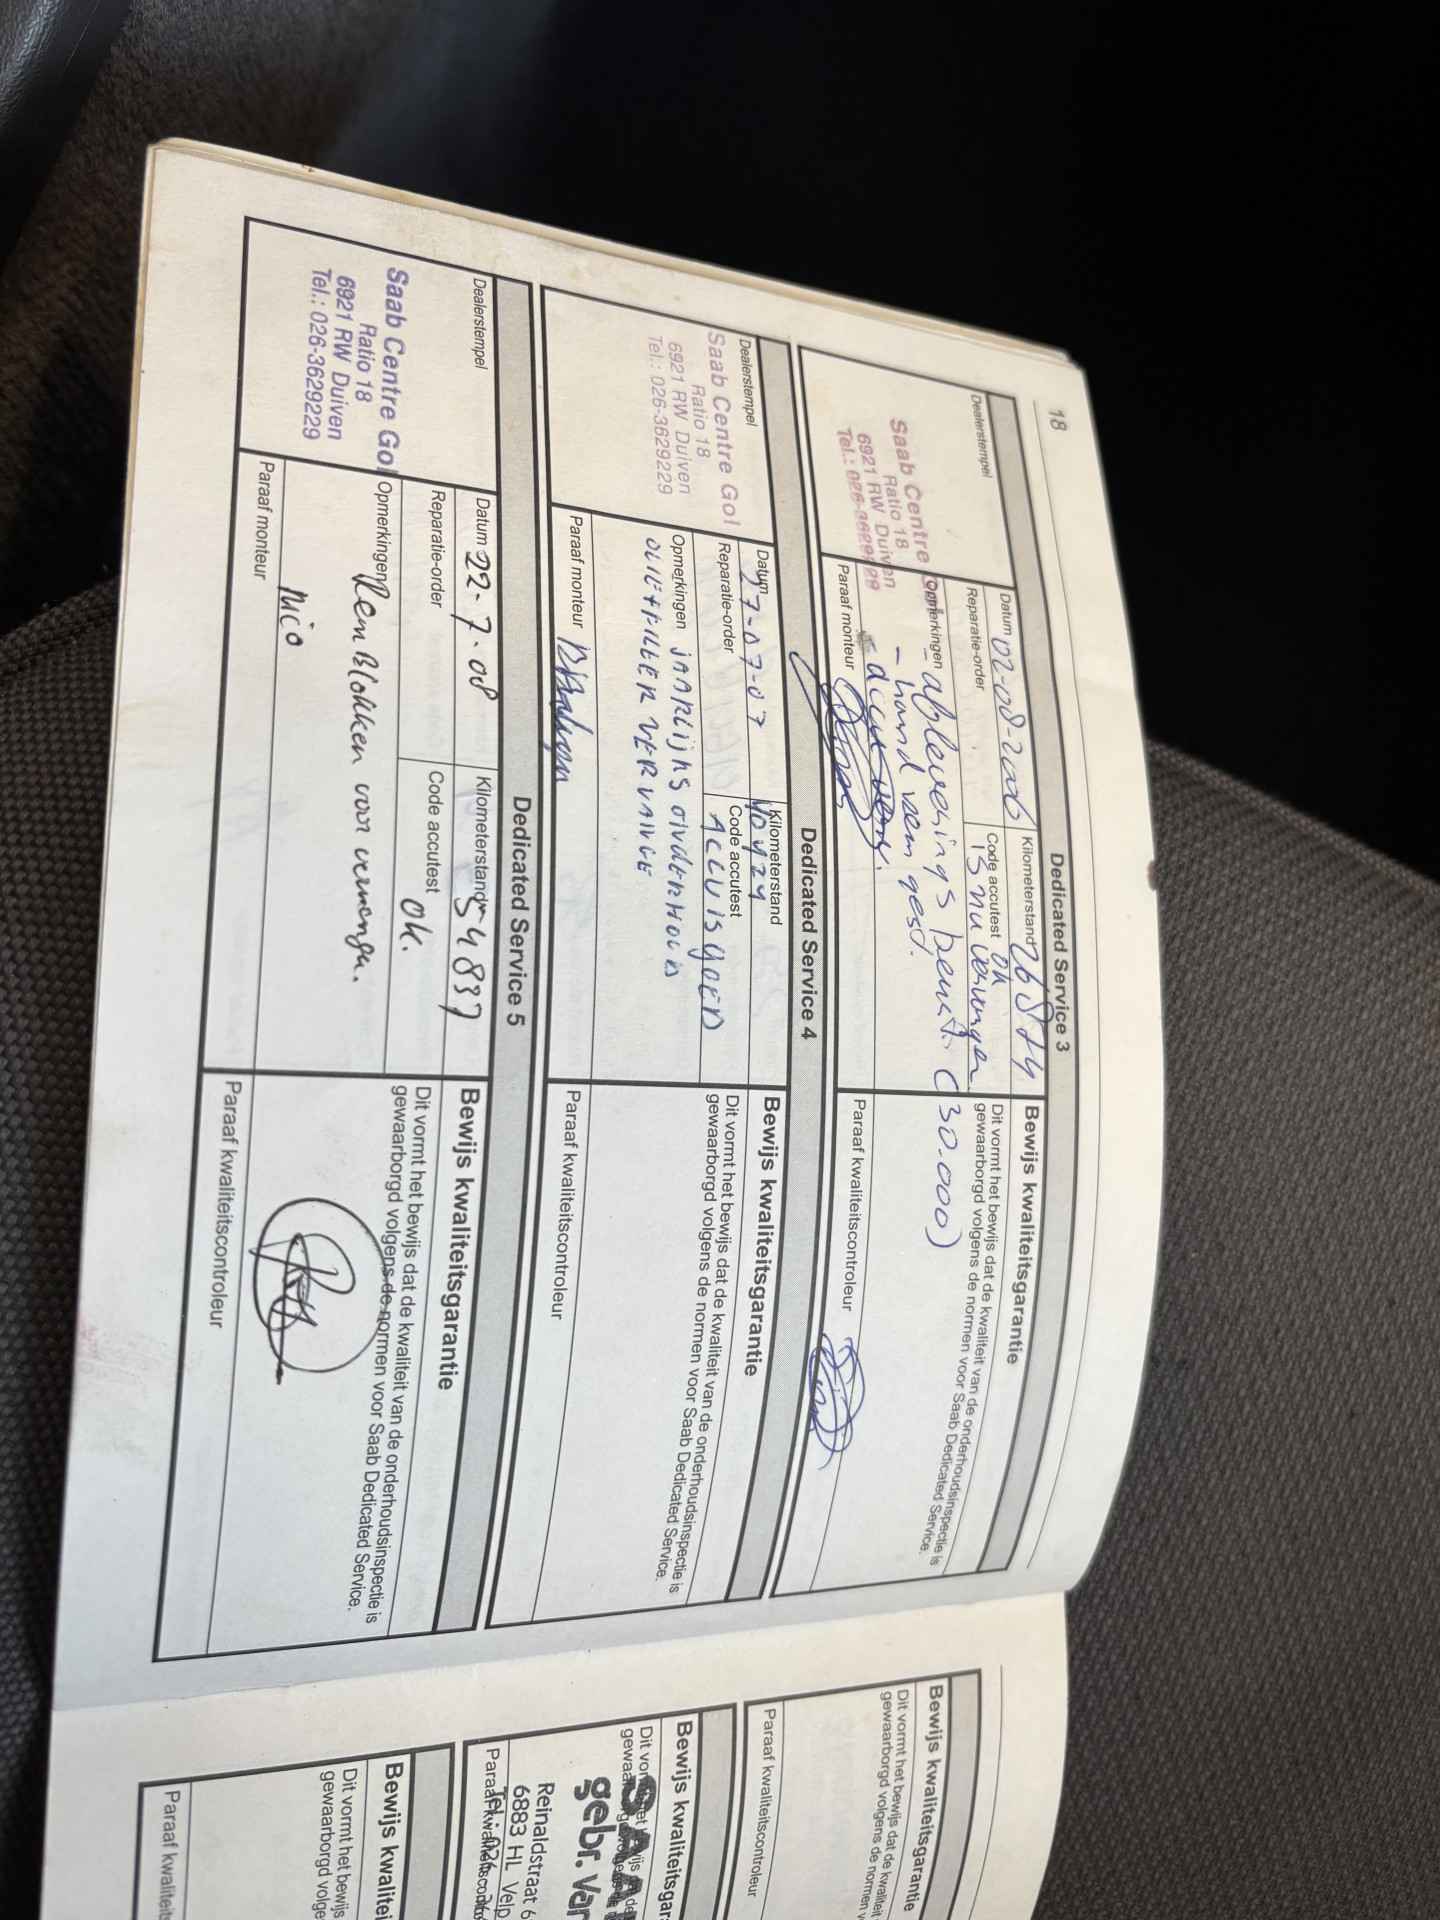 18
Dedicated Service 3
Dealerstempel
Saab Centre
Ratio 18
6921 RW Duiven
Tel.: 026-3629229
Datum 02-08-2006
Kilometerstand 26874
Reparatie-order
Code accutest ok
is nu vervangen
Opmerkingen - afleverings beurt. (30.000)
- hand rem gest.
- accu verv.
Paraaf monteur
Bewijs kwaliteitsgarantie
Dit vormt het bewijs dat de kwaliteit van de onderhoudsinspectie is
gewaarborgd volgens de normen voor Saab Dedicated Service.
Paraaf kwaliteitscontroleur
Dedicated Service 4
Dealerstempel
Saab Centre Gol
Ratio 18
6921 RW Duiven
Tel.: 026-3629229
Datum 27-07-07
Kilometerstand 40424
Reparatie-order
Code accutest
ACCU IS GOED
Opmerkingen JAARLIJKS ONDERHOUD
OLIE+FILTER VERVANGE
Paraaf monteur
Bewijs kwaliteitsgarantie
Dit vormt het bewijs dat de kwaliteit van de onderhoudsinspectie is
gewaarborgd volgens de normen voor Saab Dedicated Service.
Paraaf kwaliteitscontroleur
Dedicated Service 5
Dealerstempel
Saab Centre Gol
Ratio 18
6921 RW Duiven
Tel.: 026-3629229
Datum 22-7-08
Kilometerstand 54837
Reparatie-order
Code accutest ok.
Opmerkingen Rem Blokken voor vervangen.
Paraaf monteur
Nico
Bewijs kwaliteitsgarantie
Dit vormt het bewijs dat de kwaliteit van de onderhoudsinspectie is
gewaarborgd volgens de normen voor Saab Dedicated Service.
Paraaf kwaliteitscontroleur
Bewijs kwaliteitsgarantie
Dit vormt het bewijs dat de kwaliteit
gewaarborgd volgens de normen v
Paraaf kwaliteitscontroleur
Bewijs kwaliteitsgar
gebr. Var
Reinaldstraat 6
6883 HL Velp
Bewijs kwalitei
Dit vormt het bewijs
gewaarborgd volge
Paraaf kwaliteit